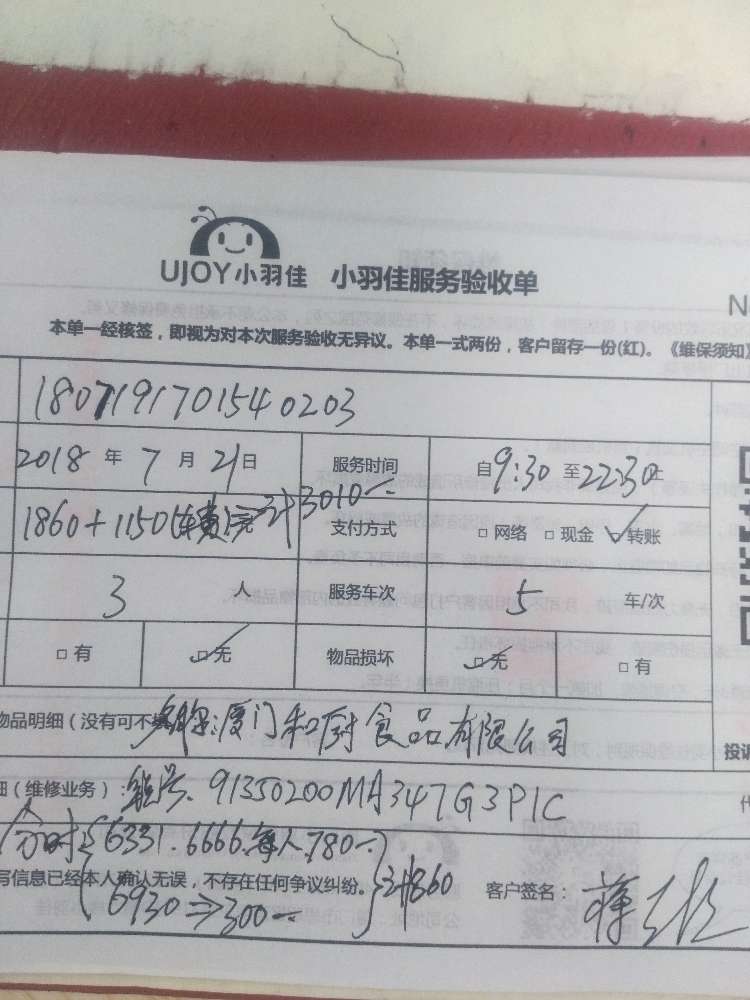 UJOY小羽佳 小羽佳服务验收单
N
本单一经核签，即视为对本次服务验收无异议。本单一式两份，客户留存一份(红)。《维保须知》
1807191701540203
2018 年 7 月 21 日 服务时间 自 9:30 至 22:30 止
1860+1150(车费)元 计3010 支付方式 □ 网络 □ 现金 ☑ 转账
3 人 服务车次 5 车/次
□ 有 ☑ 无 物品损坏 ☑ 无 □ 有
物品明细（没有可不填）：厦门和厨食品有限公司
投诉
（维修业务）：税号：91350200MA347G3P1C
代
分时 6331.6666.每人780
写信息已经本人确认无误，不存在任何争议纠纷。 计1860 客户签名：
6930⇒300